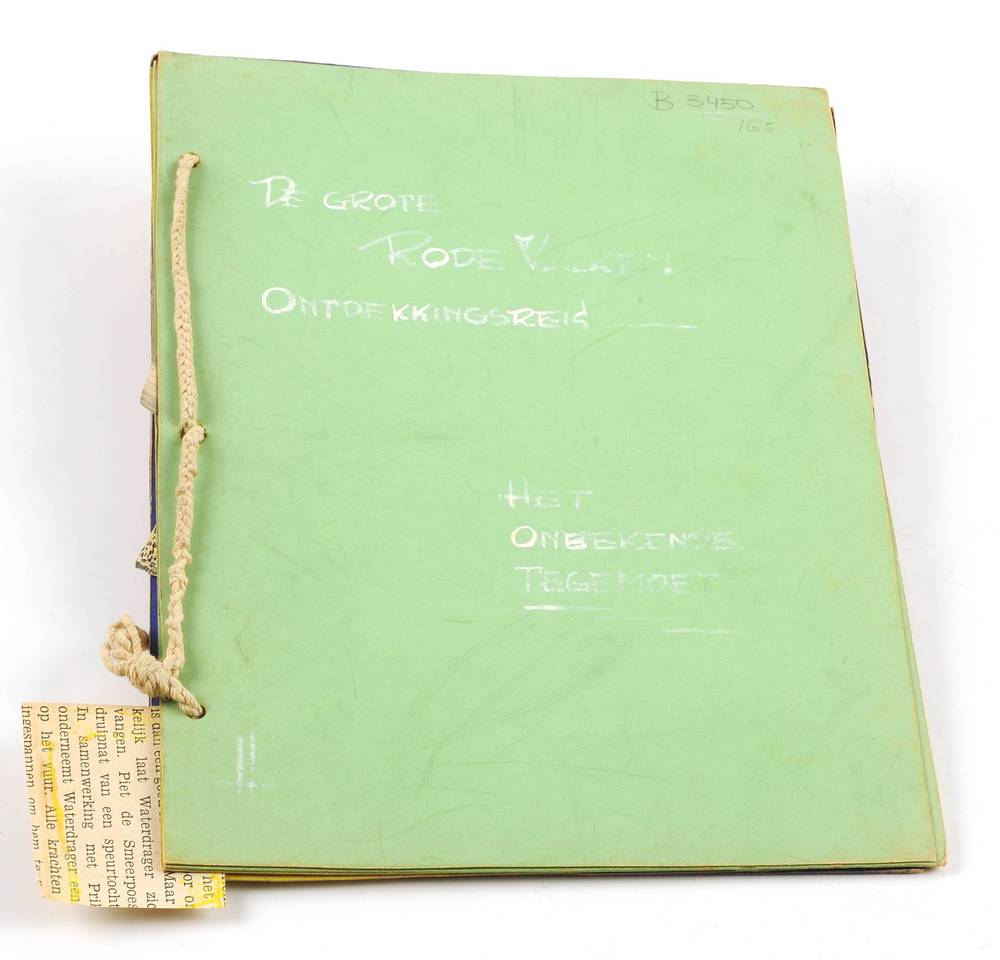 B 3450
16.5
DE GROTE
RODE VALKEN
ONTDEKKINGSREIS
HET
ONBEKENDE
TEGEMOET
is dan een
kelijk laat Waterdrager zic
vangen. Piet de Smeerpoes
druipnat van een speurtocht
In samenwerking met Pri
onderneemt Waterdrager een
op het vuur. Alle krachten
ingespannen om hem te
net
or
Maar